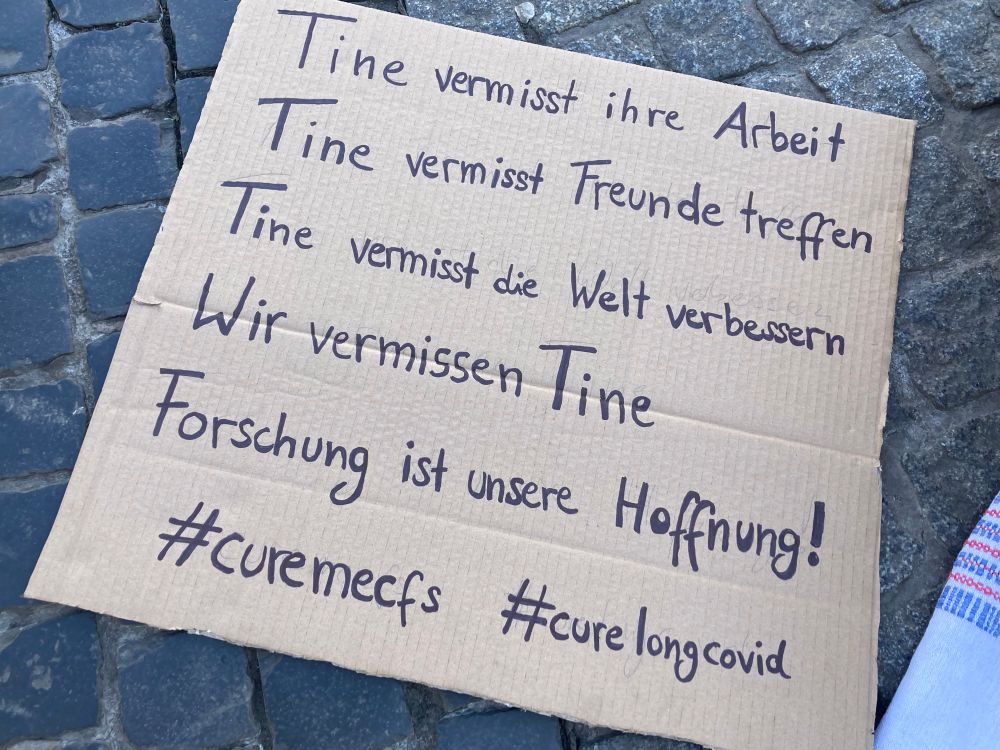 Tine vermisst ihre Arbeit
Tine vermisst Freunde treffen
Tine vermisst die Welt verbessern
Wir vermissen Tine
Forschung ist unsere Hoffnung!
#curemecfs #curelongcovid